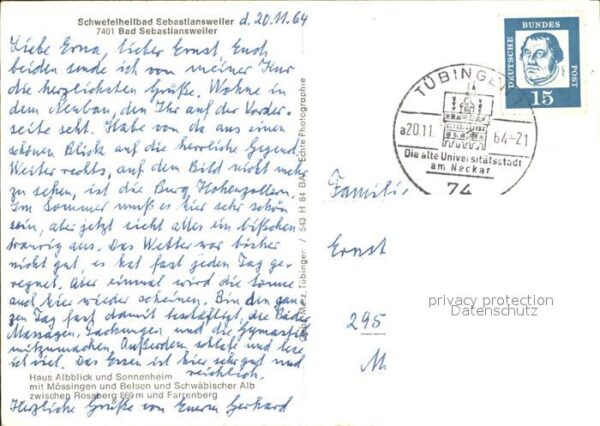 Schwefelheilbad Sebastiansweiler d. 20.11.64
7401 Bad Sebastiansweiler
Liebe Erna, lieber Ernst, Euch
beiden sende ich von meiner Kur
die herzlichsten Grüße. Wohne in
dem Neubau, den Ihr auf der Vorder-
seite seht. Habe von da aus einen
schönen Blick auf die herrliche Gegend.
Weiter rechts, auf dem Bild nicht mehr
zu sehen, ist die Burg Hohenzollern.
Im Sommer muß es hier sehr schön
sein, aber jetzt sieht alles ein bißchen
traurig aus. Das Wetter war bisher
nicht gut, es hat fast jeden Tag ge-
regnet. Aber einmal wird die Sonne
auch hier wieder scheinen. Bin den gan-
zen Tag fast damit beschäftigt, die Bäder
Massagen, Packungen und die Gymnastik
mitzumachen. Außerdem schlafe und lese
ich viel. Das Essen ist hier sehr gut und
reichlich.
Haus Albblick und Sonnenheim
mit Mössingen und Belsen und Schwäbischer Alb
zwischen Rossberg 869 m und Farrenberg
Herzliche Grüße von Eurem Gerhard
Metz, Tübingen / 543 H 84 BAV Echte Photographie
DEUTSCHE
BUNDES
POST
15
TÜBINGEN
a20.11. 64-21
Die alte Universitätsstadt
am Neckar
74
Familie
Ernst
295
M
privacy protection
Datenschutz